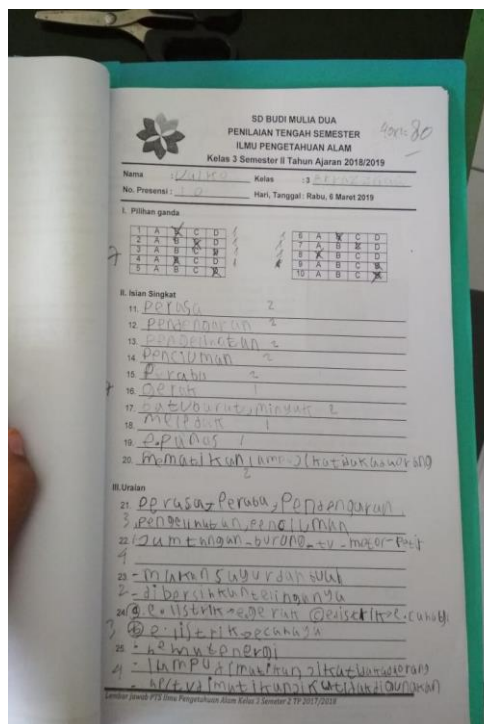 SD BUDI MULIA DUA
PENILAIAN TENGAH SEMESTER
ILMU PENGETAHUAN ALAM
80
Kelas 3 Semester II Tahun Ajaran 2018/2019
Nama : Kelas : 3
No. Presensi : 10 Hari, Tanggal : Rabu, 6 Maret 2019
I. Pilihan ganda
1 A B C D
2 A B C D
3 A B C D
4 A B C D
5 A B C D
6 A B C D
7 A B C D
8 A B C D
9 A B C D
10 A B C D
II. Isian Singkat
11. perasa 2
12. pendengaran 2
13. pengelihatan 2
14. penciuman 2
15. Peraba 2
16. gerak 1
17. batubara, minyak 2
18. meledak 1
19. e.panas 1
20. mematikan
2
III.Uraian
21. perasa, Peraba, Pendengaran,
3 pengelihatan, penciuman
22. - burung - tv - motor - Petir
4
23 - makan sayur dan buah
2 - dibersihkan telinganya
24 a e. listrik e gerak
3 b e. listrik e cahaya
25 - hemat energi
4 - lampu dimatikan
- hp/tv dimatikan
Lembar Jawab PTS Ilmu Pengetahuan Alam Kelas 3 Semester 2 TP 2017/2018